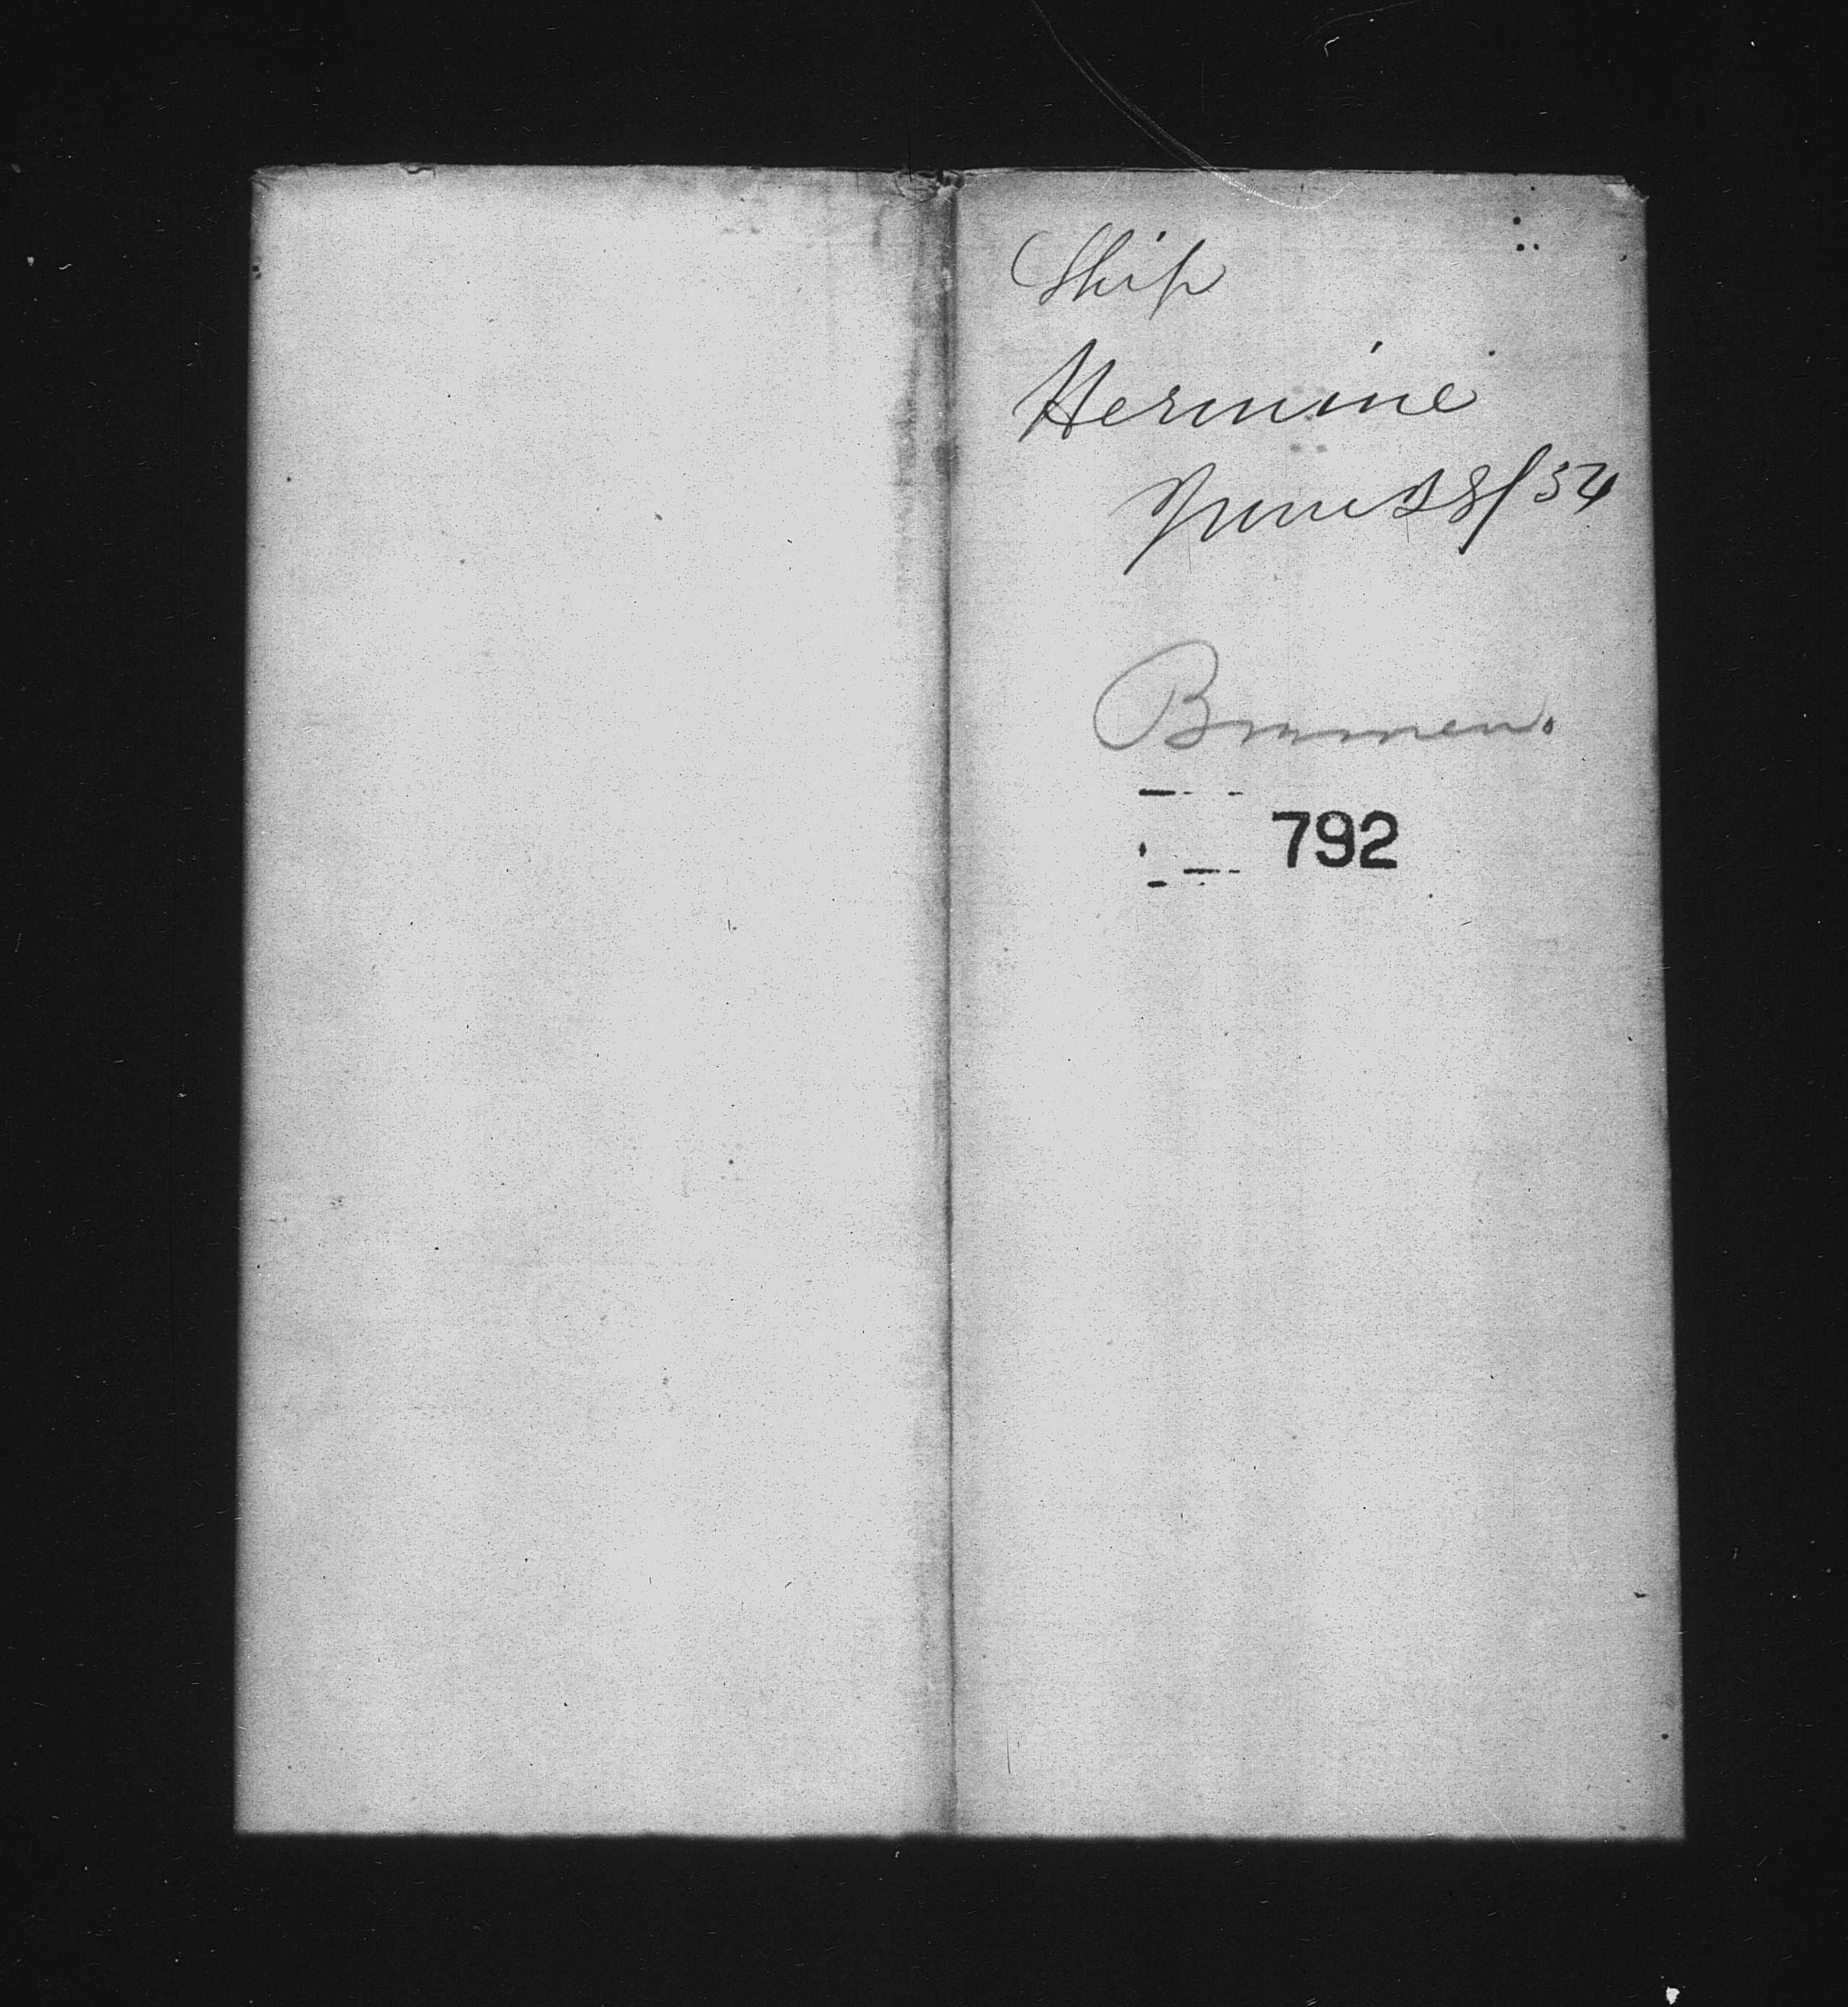 Ship
Hermine
June 28/54
Bremen.
792